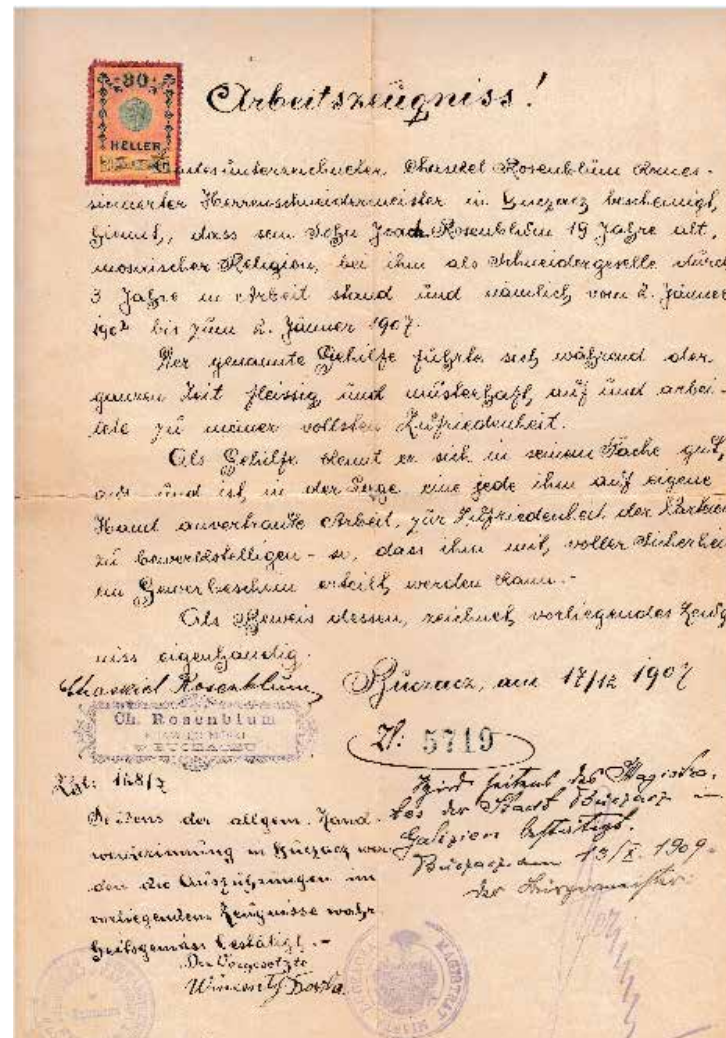 80
HELLER
Arbeitszeugniss!
Endesunterzeichneter Chaskel Rosenblüm
Herrenschneidermeister in Buczacz bescheinigt,
hiemit, dass sein Sohn Rosenblüm 19 Jahre alt,
mosaischer Religion, bei ihm als Schneidergeselle durch
3 Jahre in Arbeit stand und nämlich vom 2. Jänner
bis zum 2. Jänner 1907.
Der genannte Gehilfe führte sich während der
ganzen Zeit fleissig und musterhaft auf und arbei-
tete zu meiner vollsten Zufriedenheit.
Als Gehilfe kennt er sich in seinem Fache gut,
aus und ist in der Lage eine jede ihm auf eigene
Hand anvertraute Arbeit, zur Zufriedenheit der
zu bewerkstelligen - so, dass ihm mit voller Sicherheit
ein Gewerbeschein erteilt werden kann.-
Als Beweis dessen, zeichnet vorliegendes Zeug-
niss eigenhändig.
Chaskiel Rosenblum
Buczacz, am 17/12 1907
Ch. Rosenblum
W BUCZACZU
Zl: 5719
Seitens der allgem. Hand-
werkerinnung in Buczacz wer-
den die Ausführungen im
vorliegendem Zeugnisse wahr-
heitsgemäss bestätigt.-
Der Vorgesetzte
Wird seitens des Magistra-
tes der Stadt Buczacz in
Galizien bestätigt.
Buczacz am 13/X. 1909.
der Bürgermeister:
MAGISTRAT MIASTA